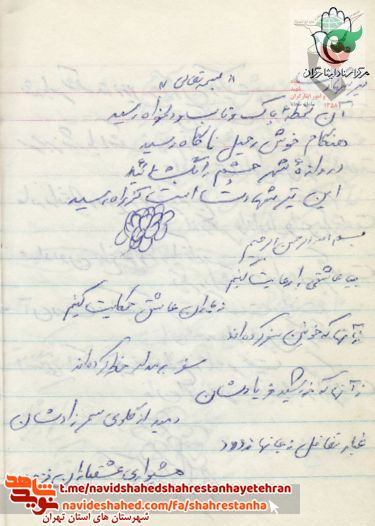 « بسمه تعالی »
آن لحظهٔ پاک و ناب و دلخواه رسید
هنگام خوش رحیل ناگاه رسید
دروازهٔ شهر چشم را بگشائید
این تیر شهادت است کز راه رسید
بسم الله الرحمن الرحیم
بیا عاشقی را رعایت کنیم
ز یاران عاشق حکایت کنیم
از آنها که خونین سفر کرده‌اند
سفر بر مدار خطر کرده‌اند
از آنها که خورشید فریادشان
دمید از گلوی سحرزادشان
غبار تغافل ز جانها زدود
هشیواری عشقبازان
مرکز اسناد ایثارگران
نوید شاهد
t.me/navidshahedshahrestanhayetehran
navidshahed.com/fa/shahrestanha
شهرستان های استان تهران